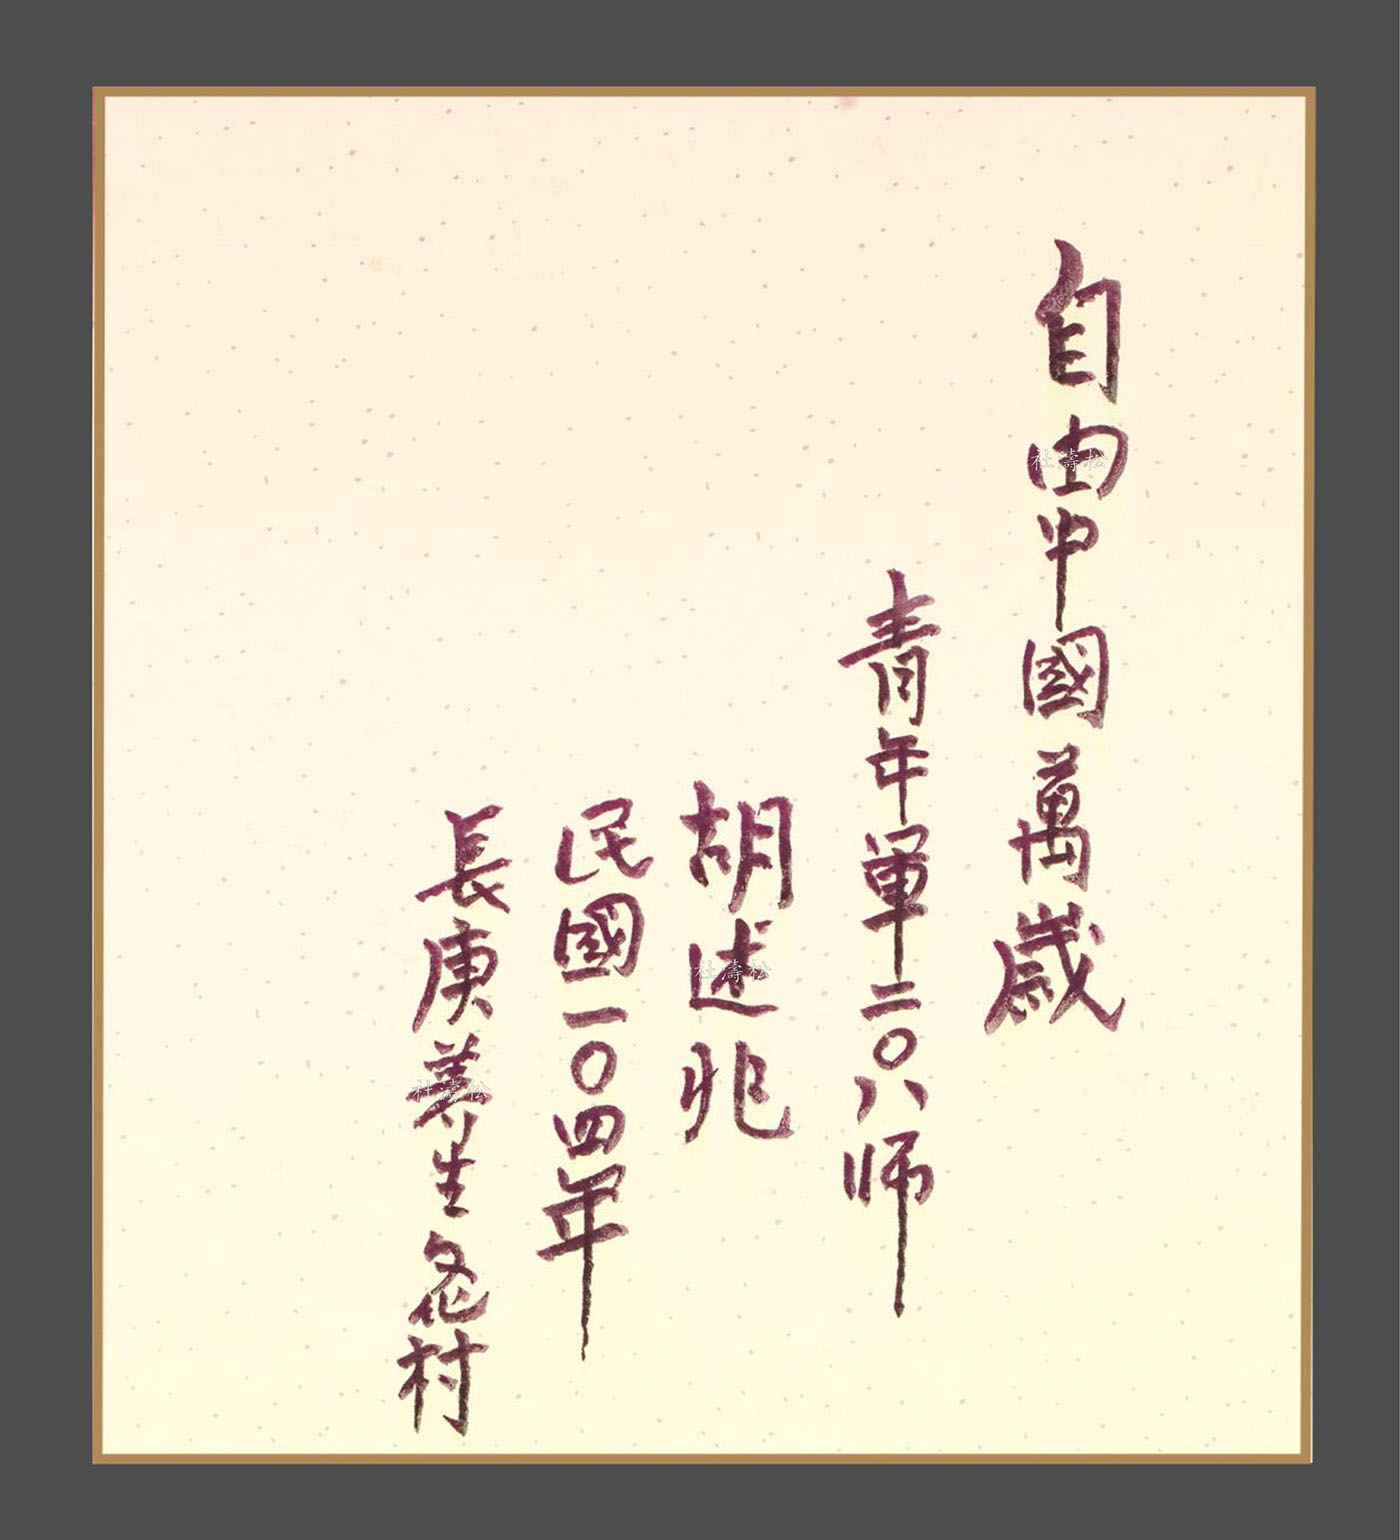 自由中國萬歲
青年軍二〇八師
胡述兆
民國一〇四年
長庚養生文化村
杜濤松
杜濤松
杜濤松